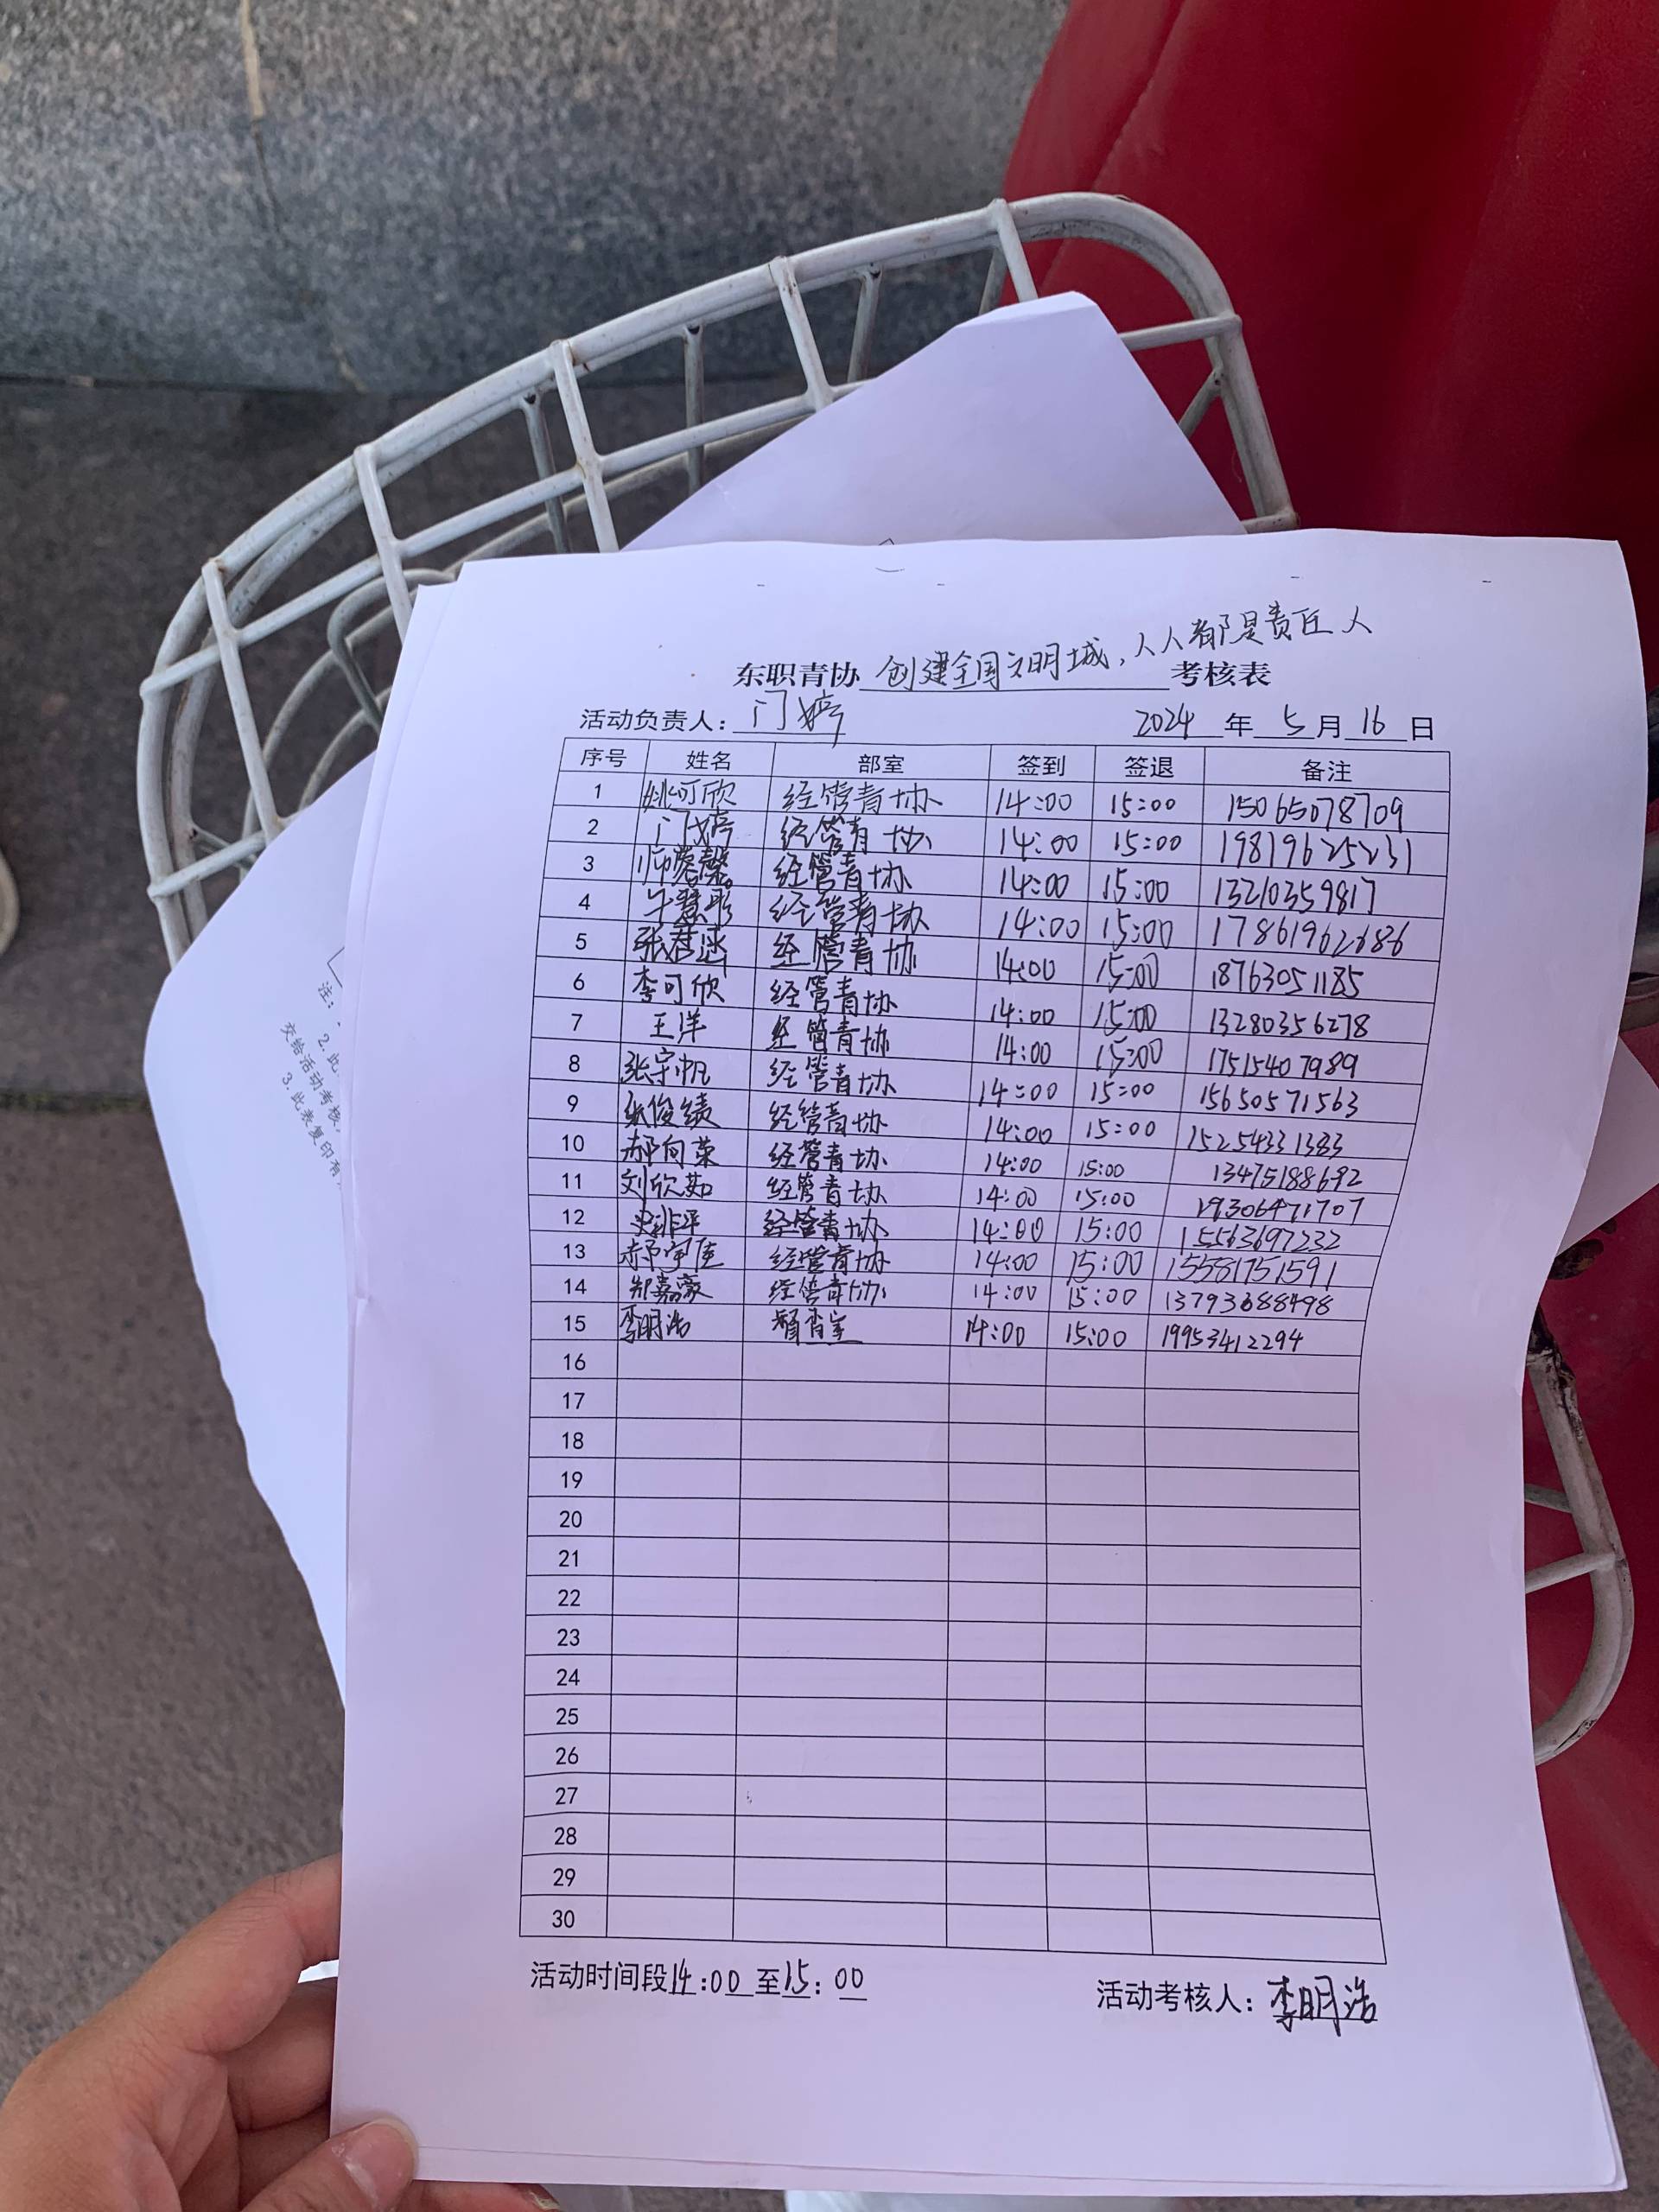 人人都是责任人
东职青协 创建全国文明城, 考核表
活动负责人: 门婷 2024 年 5 月 16 日
序号 姓名 部室 签到 签退 备注
1 姚可欣 经管青协 14:00 15:00 15065078709
2 门婷 经管青协 14:00 15:00 19819625231
3 师蓉馨 经管青协 14:00 15:00 13210359817
4 牛慧彤 经管青协 14:00 15:00 17861962686
5 张君涵 经管青协 14:00 15:00 18763051185
6 李可欣 经管青协 14:00 15:00 13280356278
7 王洋 经管青协 14:00 15:00 17515407989
8 张宇帆 经管青协 14:00 15:00 15650571563
9 张俊绩 经管青协 14:00 15:00 15254331383
10 郝向荣 经管青协 14:00 15:00 13475188692
11 刘欣茹 经管青协 14:00 15:00 19306471707
12 史非平 经管青协 14:00 15:00 15563697232
13 郝宇佳 经管青协 14:00 15:00 15581751591
14 郑嘉豪 经管青协 14:00 15:00 13793688498
15 李明浩 督查室 14:00 15:00 19953412294
16
17
18
19
20
21
22
23
24
25
26
27
28
29
30
活动时间段14:00至15:00 活动考核人: 李明浩
注:
2.此
交给活动考核
3.此表复印有